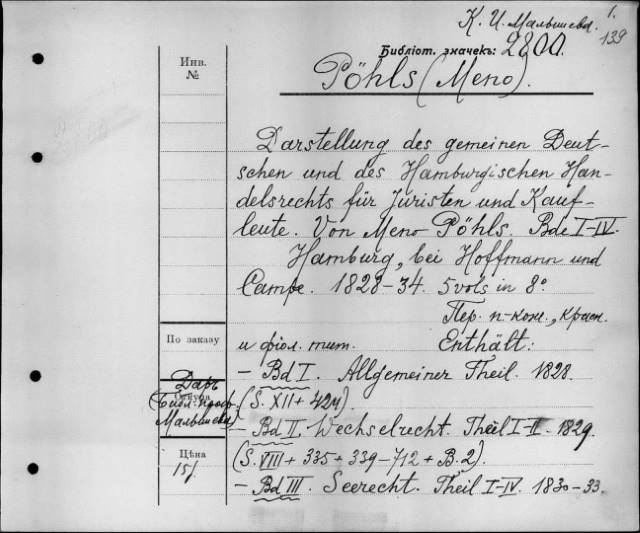 К. И. Малышева. 1.
139
Библіот. значекъ: 2800.
Инв.
№
Pöhls (Meno).
Darstellung des gemeinen Deut-
schen und des Hamburgischen Han-
delsrechts für Juristen und Kauf-
leute. Von Meno Pöhls. Bde I-IV.
Hamburg, bei Hoffmann und
Campe. 1828-34. 5 vols in 8°
Пер. п-кож., красн.
По заказу
и фіол. тит. Enthält:
- Bd I. Allgemeiner Theil. 1828.
Даръ
(Библ. проф.
Малышева)
(S. XII + 424)
- Bd II. Wechselrecht. Theil I-II. 1829.
Цѣна
15/.
(S. VIII + 335 + 339-712 + B. 2).
- Bd III. Seerecht. Theil I-IV. 1830-33.